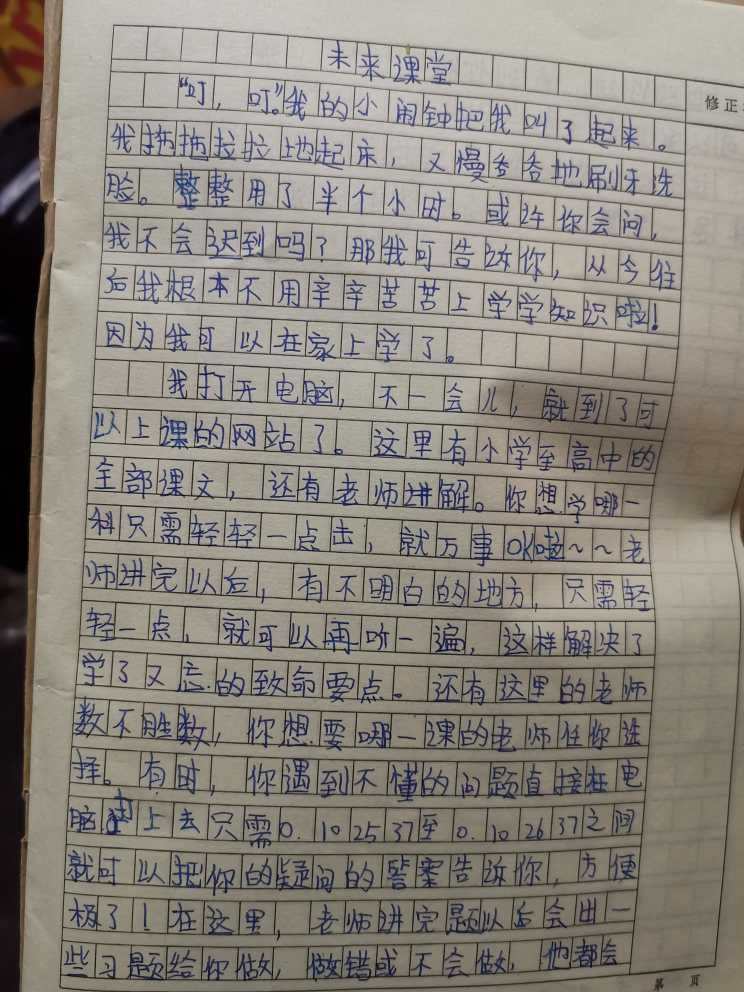 未来课堂
修正
“叮，叮。”我的小闹钟把我叫了起来。
我拖拖拉拉地起床，又慢爷爷地刷牙洗
脸。整整用了半个小时。或许你会问，
我不会迟到吗？那我可告诉你，从今往
后我根本不用辛辛苦苦上学学知识啦！
因为我可以在家上学了。
我打开电脑，不一会儿，就到了可
以上课的网站了。这里有小学至高中的
全部课文，还有老师讲解。你想学哪一
科只需轻轻一点击，就万事OK啦～～老
师讲完以后，有不明白的地方，只需轻
轻一点，就可以再听一遍，这样解决了
学了又忘的致命要点。还有这里的老师
数不胜数，你想要哪一课的老师任你选
择。有时，你遇到不懂的问题直接在电
脑打上去只需0.102537至0.102637之间
就可以把你的疑问的答案告诉你，方便
极了！在这里，老师讲完题以后会出一
些习题给你做，做错或不会做，他都会
第 页